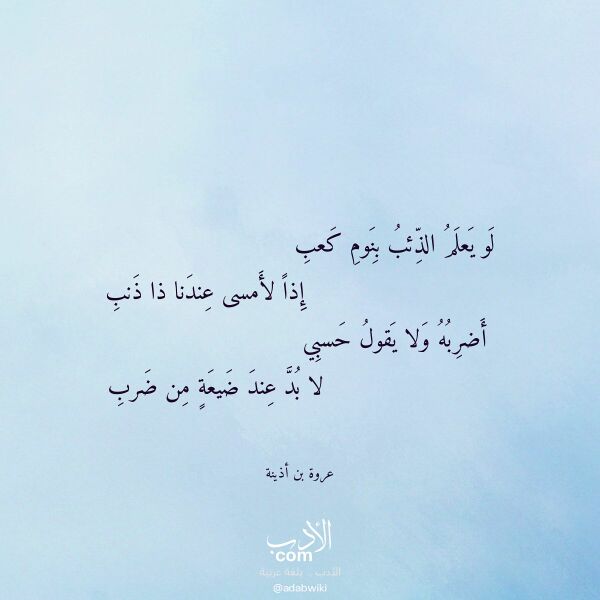 لَو يَعلَمُ الذِّئبُ بِنَومِ كَعبِ
إِذاً لأَمسى عِندَنا ذا ذَنبِ
أَضرِبُهُ وَلا يَقولُ حَسبِي
لا بُدَّ عِندَ ضَيعَةٍ مِن ضَربِ
عروة بن أذينة
الأدب
com
الأدب .. بلغة عربية
@adabwiki